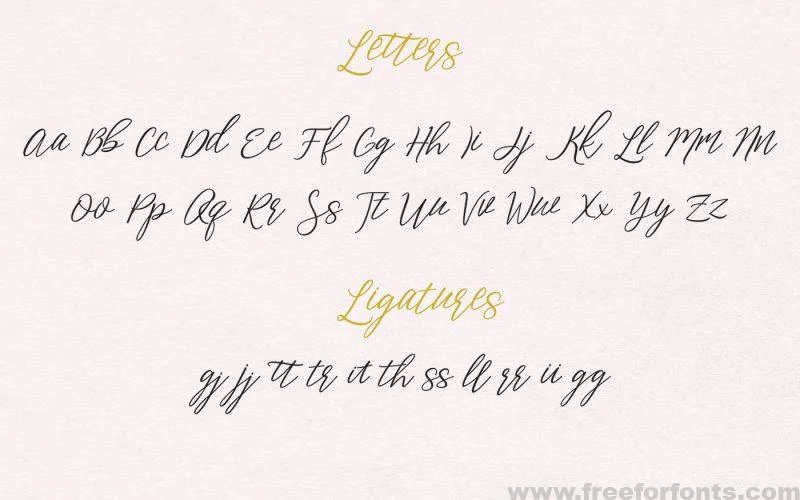 Letters
Aa Bb Cc Dd Ee Ff Gg Hh Ii Jj Kk Ll Mm Nn
Oo Pp Qq Rr Ss Tt Uu Vv Ww Xx Yy Zz
Ligatures
gj jj tt tr it th ss ll rr ii gg
www.freeforfonts.com